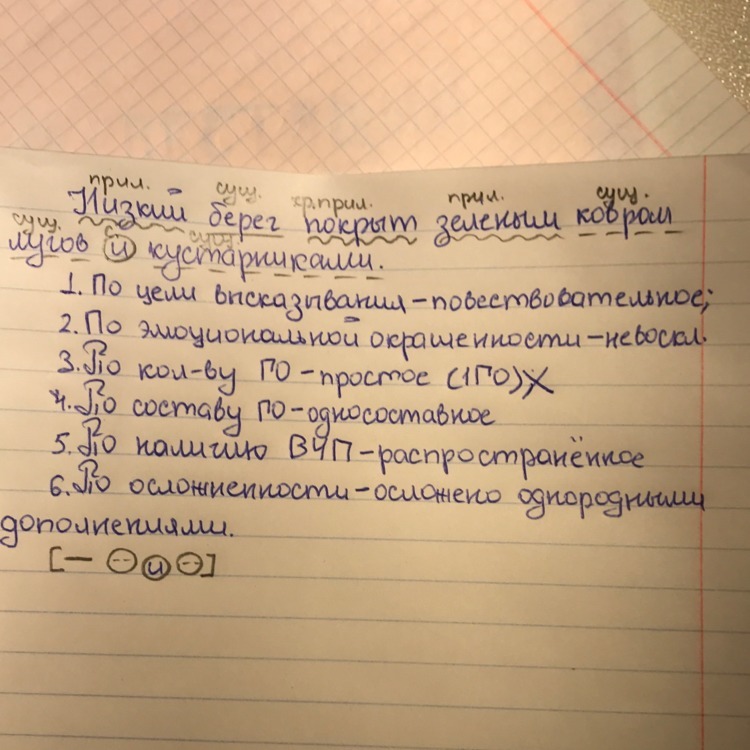 прил. сущ. кр.прил. прил. сущ.
Низкий берег покрыт зеленым ковром
сущ. с. сущ.
лугов и кустарниками.
1. По цели высказывания – повествовательное;
2. По эмоциональной окрашенности – невоскл.
3. По кол-ву ГО – простое (1ГО)
4. По составу ГО – односоставное
5. По наличию ВЧП – распространённое
6. По осложненности – осложено однородными
дополнениями.
[— и ]